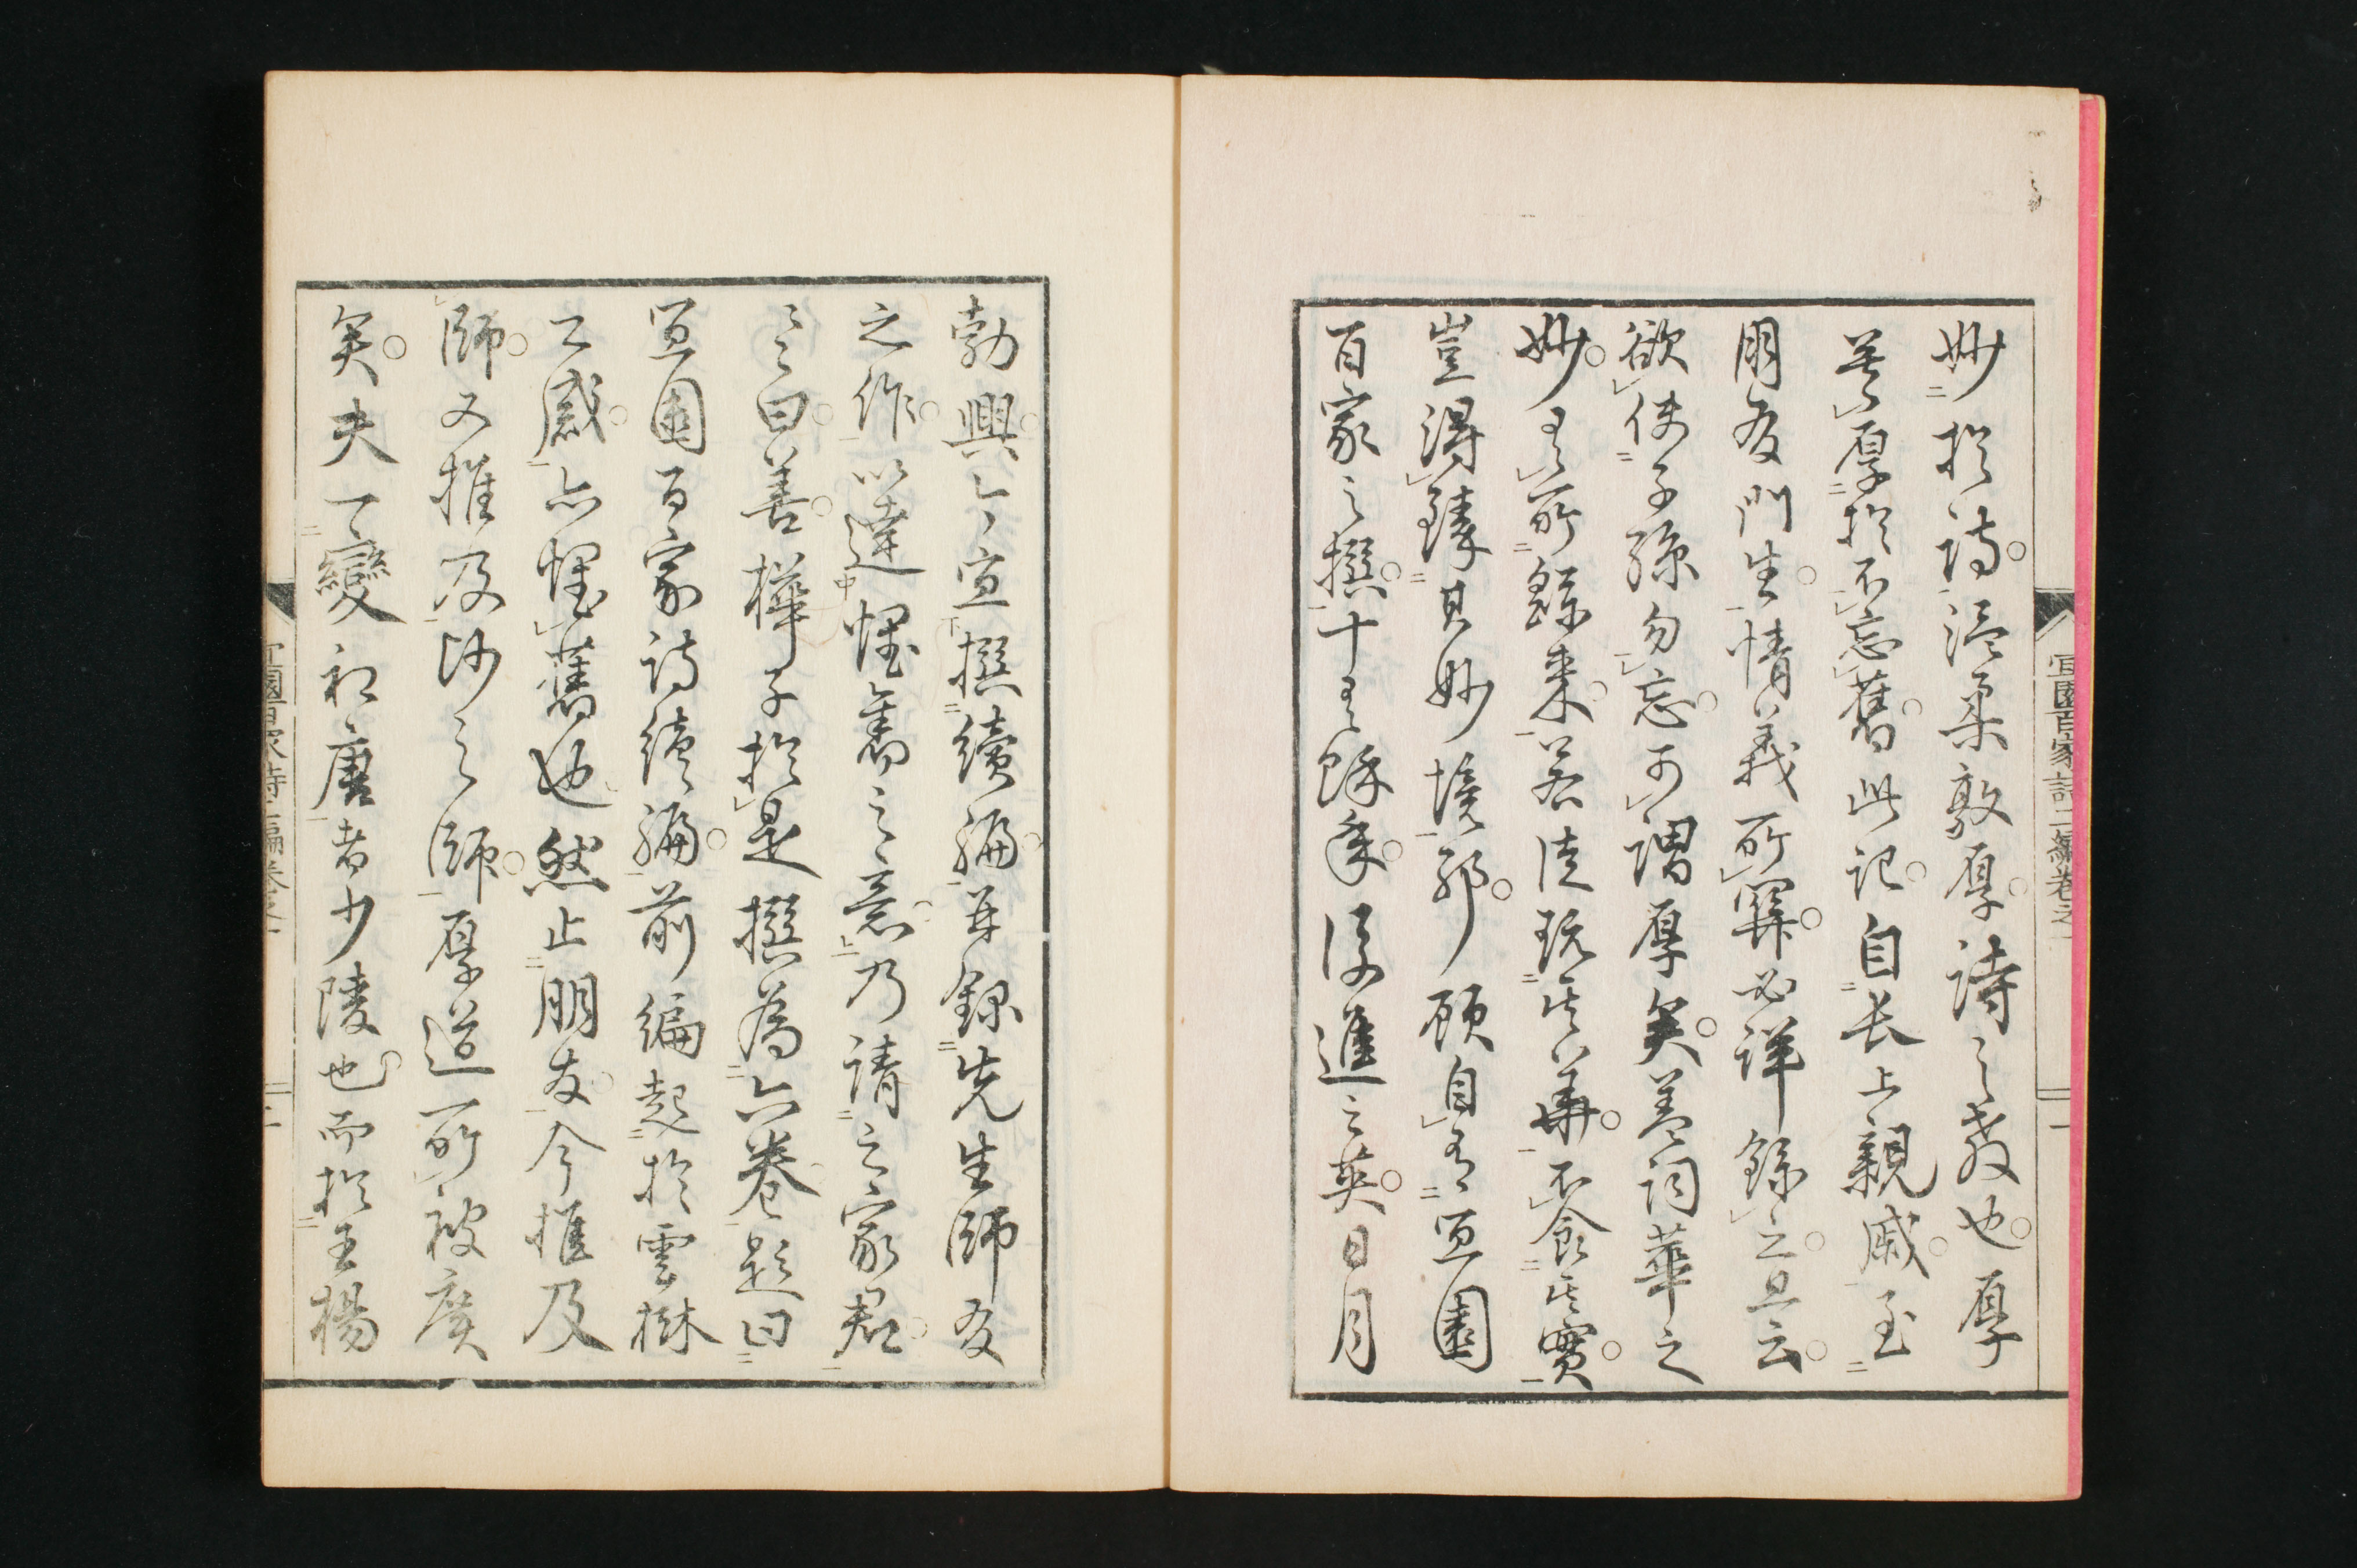 妙於詩溫柔敦厚詩之教也厚
莫厚於不忘舊此記自長上親戚至
朋友門生情義所關必詳錄之且云
欲使子孫勿忘可謂厚矣蓋詞華之
妙有所繇來若徒玩其華不食其實
豈得臻其妙境邪顧自有宜園
百家之撰十有餘年後進之英日月
勃興今宜撰續編并錄先生師友
之作以達懷舊之意乃請之家君
之曰善樺子於是撰為六卷題曰
宜園百家詩續編前編起於雲楙
之感亦懷舊也然止朋友今推及
師又推及師之師厚道所被廣
矣夫一變初唐者少陵也而於王楊
宜園百家詩二編卷之一
一
宜園百家詩二編卷之一
二